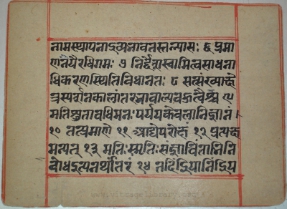 नामस्थापनाद्रव्यभावतस्तन्न्यासः ६ प्रमा
णनयैरधिगमः ७ निर्देशस्वामित्वसाधना
धिकरणस्थितिविधानतः ८ सत्संख्याक्षे
त्रस्पर्शनकालांतरभावाल्पबहुत्वैश्च ९
मतिश्रुतावधिमनःपर्ययकेवलानिज्ञानं
१० तत्प्रमाणे ११ आद्येपरोक्षं १२ प्रत्यक्ष
मन्यत् १३ मतिःस्मृतिःसंज्ञाचिंताभिनि
बोधइत्यनर्थांतरं १४ तदिंद्रियानिंद्रिय